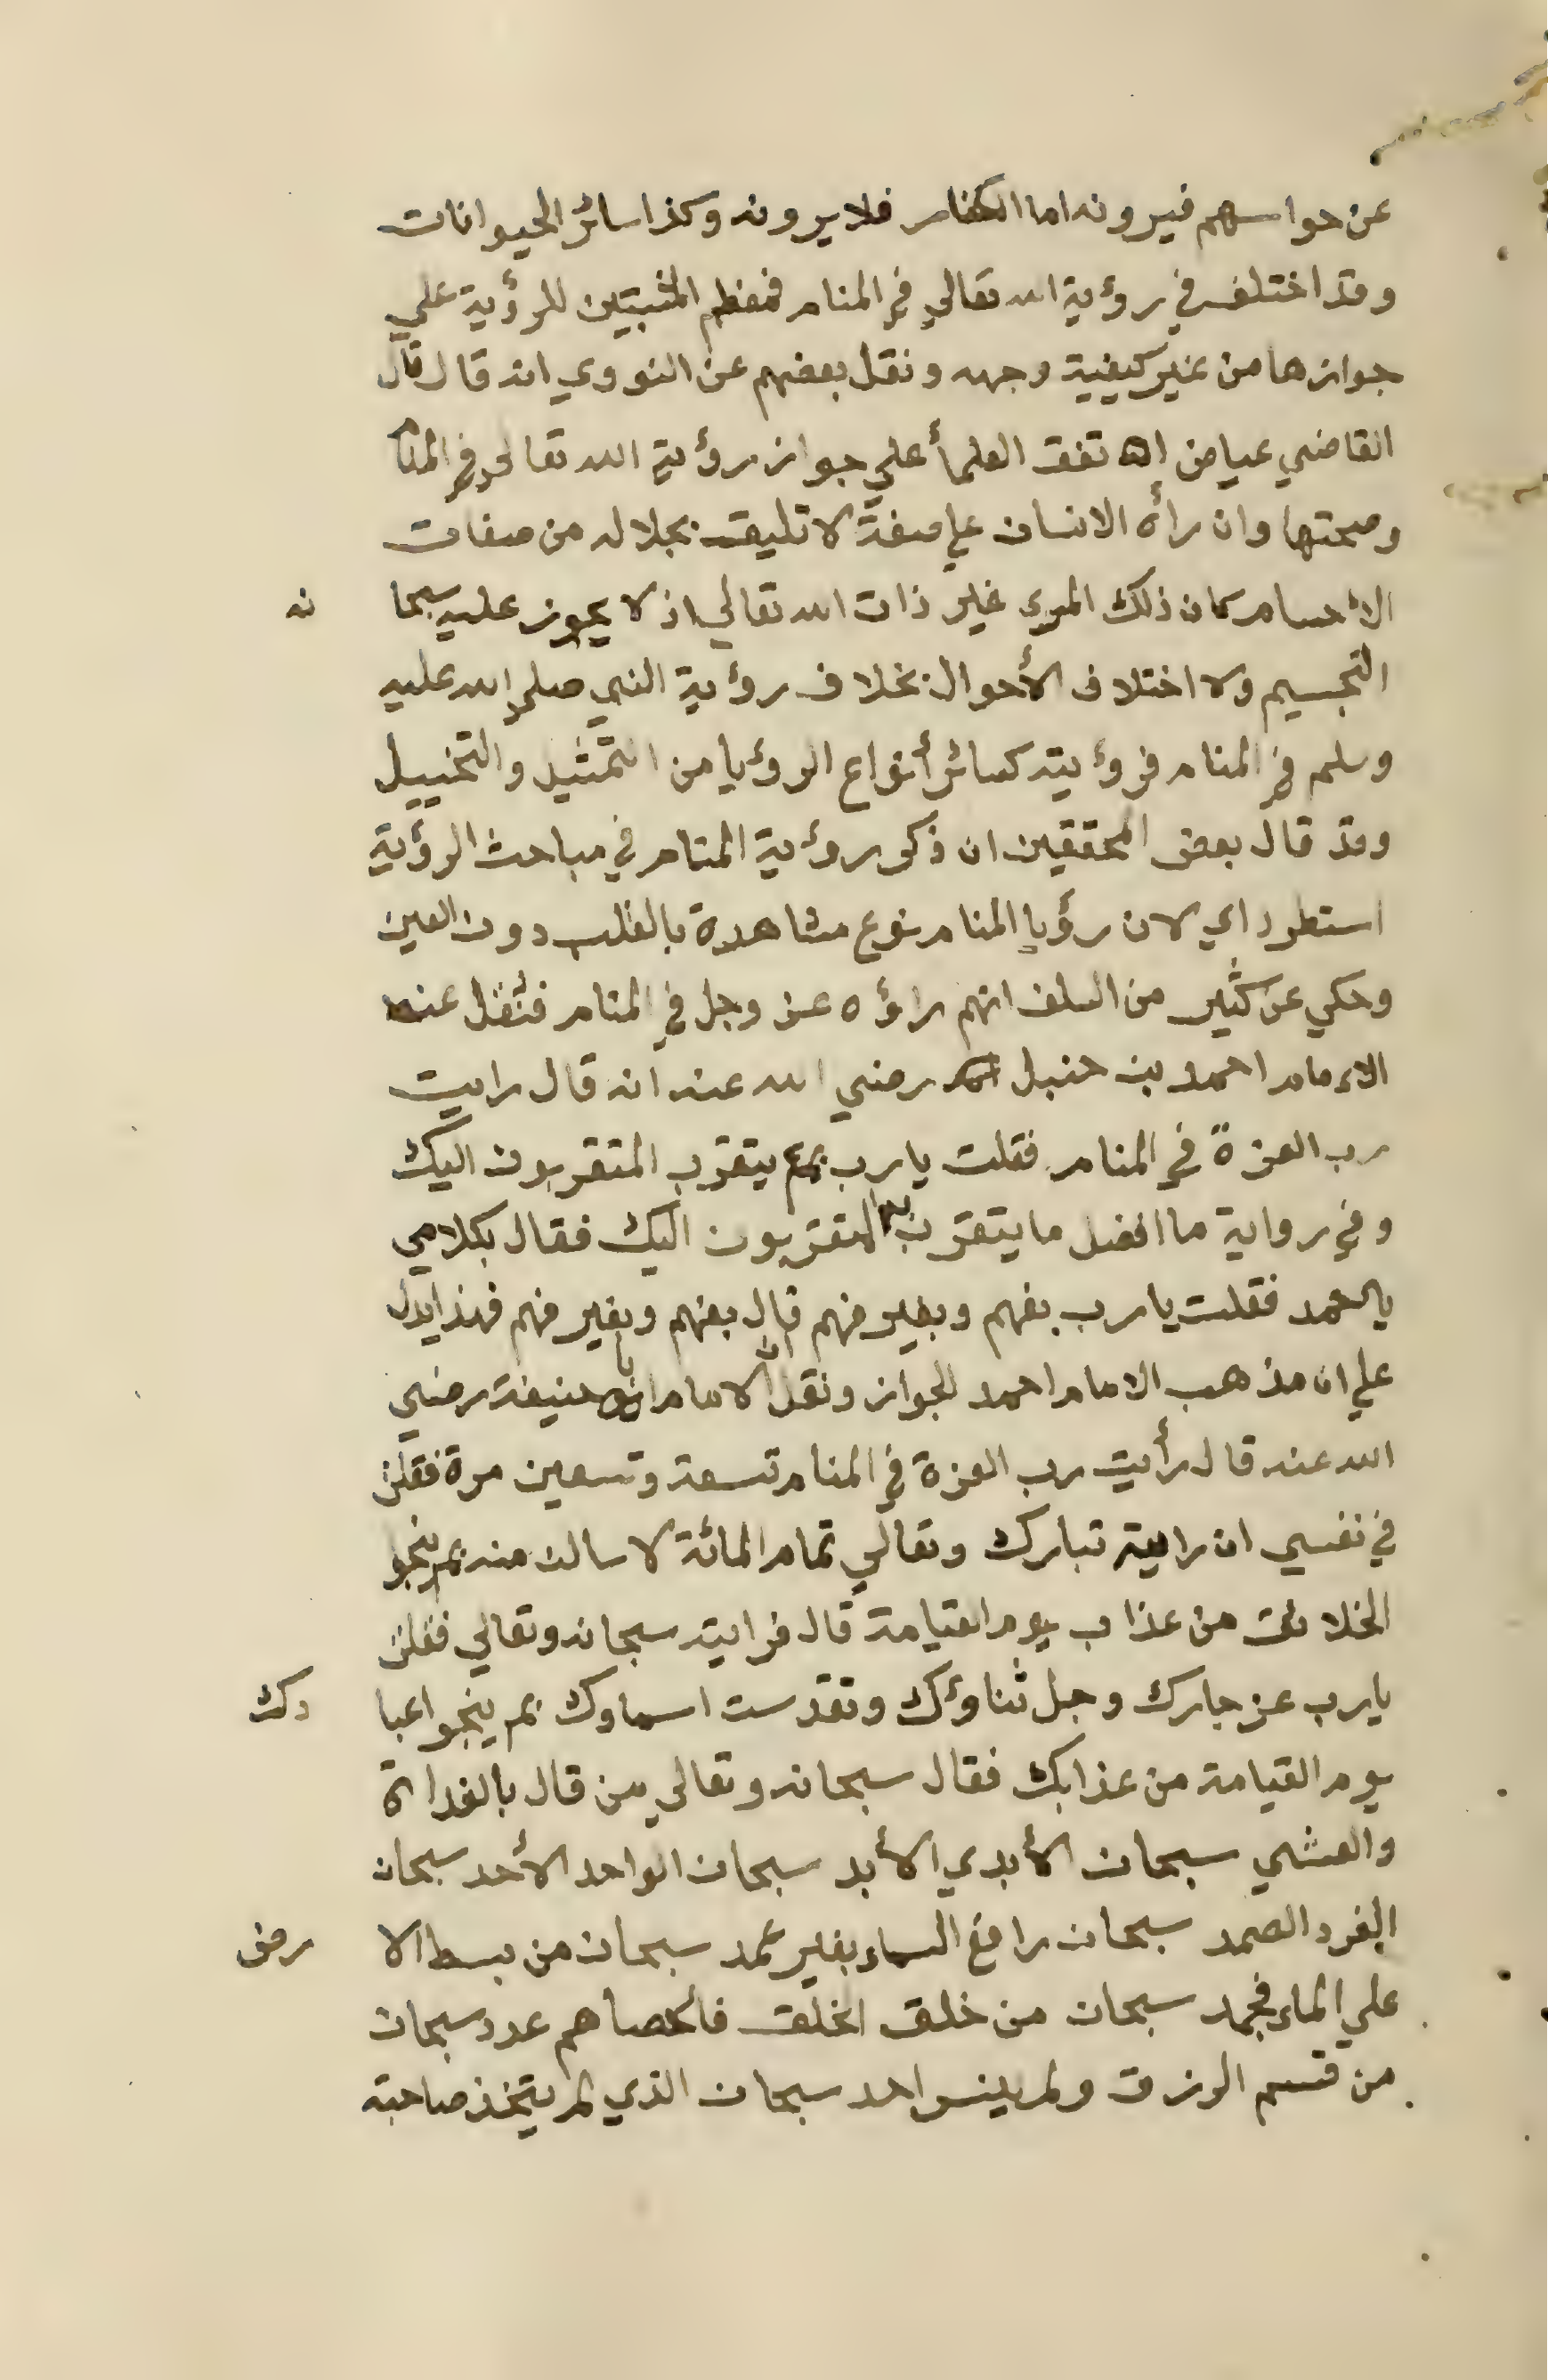 عن حواسهم فيرونه اما الكفار فلا يرونه وكذا سائر الحيوانات
وقد اختلف في رؤية الله تعالي في المنام فمعظم المثبتين للرؤية علي
جوازها من غير كيفية وجهه ونقل بعضهم عن النووي انه قال قال
القاضي عياض اتفق العلمأ علي جواز رؤية الله تعالي في المنام
وصحتها وان رأه الانسان علي صفة لا تليق بجلاله من صفات
الأجسام كان ذلك المرى غير ذات الله تعالي اذ لا يجوز عليه سبحانه
التجسيم ولا اختلاف الأحوال بخلاف رؤية النبي صلي الله عليه
وسلم في المنام فرؤيته كسائر أنواع الرؤيا من التمثيل والتخييل
وقد قال بعض المحققين ان ذكر رؤية المنام في مباحث الرؤية
استطرداي لان رؤيا المنام نوع مشاهدة بالقلب دون العين
وحكي عن كثير من السلف انهم راؤه عز وجل في المنام فنقل عنه
الامام احمد بن حنبل رضي الله عنه انه قال رايت
رب العزة في المنام فقلت يا رب بم يتقرب المتقربون اليك
وفي رواية ما افضل ما يتقرب به المتقربون اليك فقال بكلامي
يا احمد فقلت يا رب بفهم وبغير فهم قال بفهم وبغير فهم فهذا يدل
علي ان مذهب الامام احمد الجواز ونقل ان الامام ابا حنيفة رضي
الله عنه قال رأيت رب العزة في المنام تسعة وتسعين مرة فقلت
في نفسي ان رايته تبارك وتعالي تمام المائة لاسالن منه بم ينجو
الخلائق من عذاب يوم القيامة قال فرايته سبحانه وتعالي فقلت
يا رب عز جارك وجل ثناؤك وتقدست اسماوك بم ينجوا عبادك
يوم القيامة من عذابك فقال سبحانه وتعالي من قال بالغداة
والعشي سبحان الأبدي الأبد سبحان الواحد الأحد سبحان
الفرد الصمد سبحان رافع السماء بغير عمد سبحان من بسط الارض
علي الماء فجمد سبحان من خلق الخلق فأحصاهم عدد سبحان
من قسم الرزق ولم ينس احد سبحان الذي لم يتخذ صاحبة